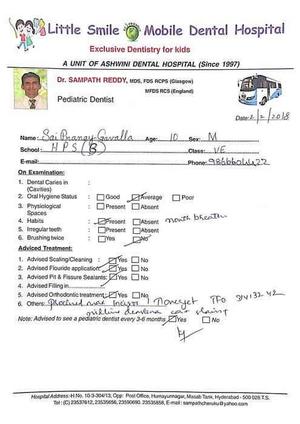 Little Smile Mobile Dental Hospital
Exclusive Dentistry for kids
A UNIT OF ASHWINI DENTAL HOSPITAL (Since 1997)
Dr. SAMPATH REDDY, MDS, FDS RCPS (Glasgow)
MFDS RCS (England)
Pediatric Dentist
Date: 2/2/2018
Name: Sai Pranay Gavalla Age: 10 Sex: M
School: HPS (B) Class: VE
E-mail: Phone:
On Examination:
1. Dental Caries in (Cavities) :
2. Oral Hygiene Status : Good Average Poor
3. Physiological Spaces : Present Absent
4. Habits : Present Absent mouth breather
5. Irregular teeth : Present Absent
6. Brushing twice : Yes No
Adviced Treatment:
1. Advised Scaling/Cleaning : Yes No
2. Advised Flouride application : Yes No
3. Advised Pit & Fissure Sealants : Yes No
4. Advised Filling in
5. Advised Orthodontic treatment : Yes No
6. Others:
Note: Advised to see a pediatric dentist every 3-6 months Yes No
Hospital Address: H.No. 10-3-304/13, Opp: Post Office, Humayunnagar, Masab Tank, Hyderabad - 500 028 T.S.
Tel: (C) 23537612, 23535656, 23590690, 23535858, E-mail: sampathcheruku@yahoo.com